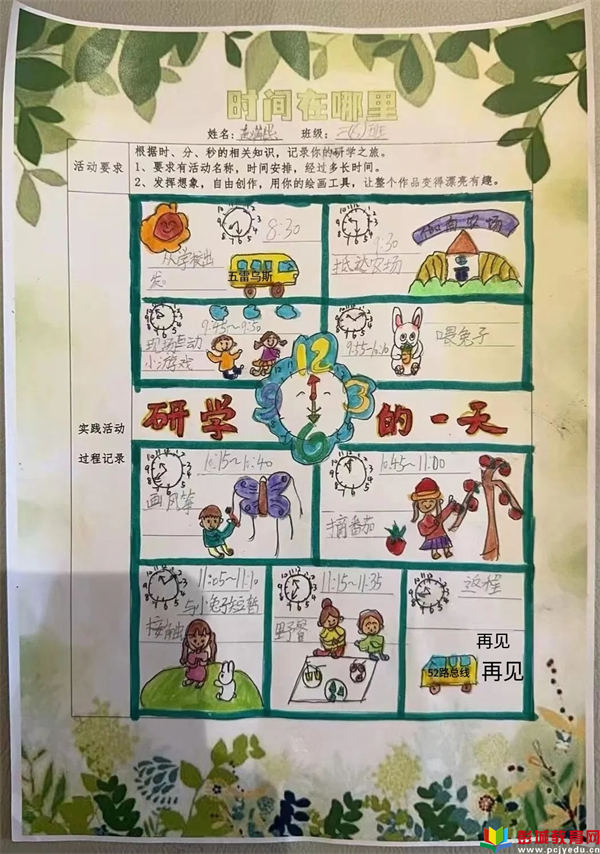 时间在哪里
姓名：
班级：三（8）班
活动要求
根据时、分、秒的相关知识，记录你的研学之旅。
1、要求有活动名称，时间安排，经过多长时间。
2、发挥想象，自由创作，用你的绘画工具，让整个作品变得漂亮有趣。
实践活动
过程记录
8:30
从学校出
发。
五雷乌斯
9:30
抵达农场
农场
9:45~9:50
现场互动
小游戏
9:55~10:10
喂兔子
12
3
6
9
研学的一天
10:15~10:40
画风筝
10:45~11:00
摘番茄
11:05~11:10
与小兔子短暂
接触
11:15~11:35
野餐
返程
再见
52路总线
再见
彭城教育网
www.pcjyedu.cn